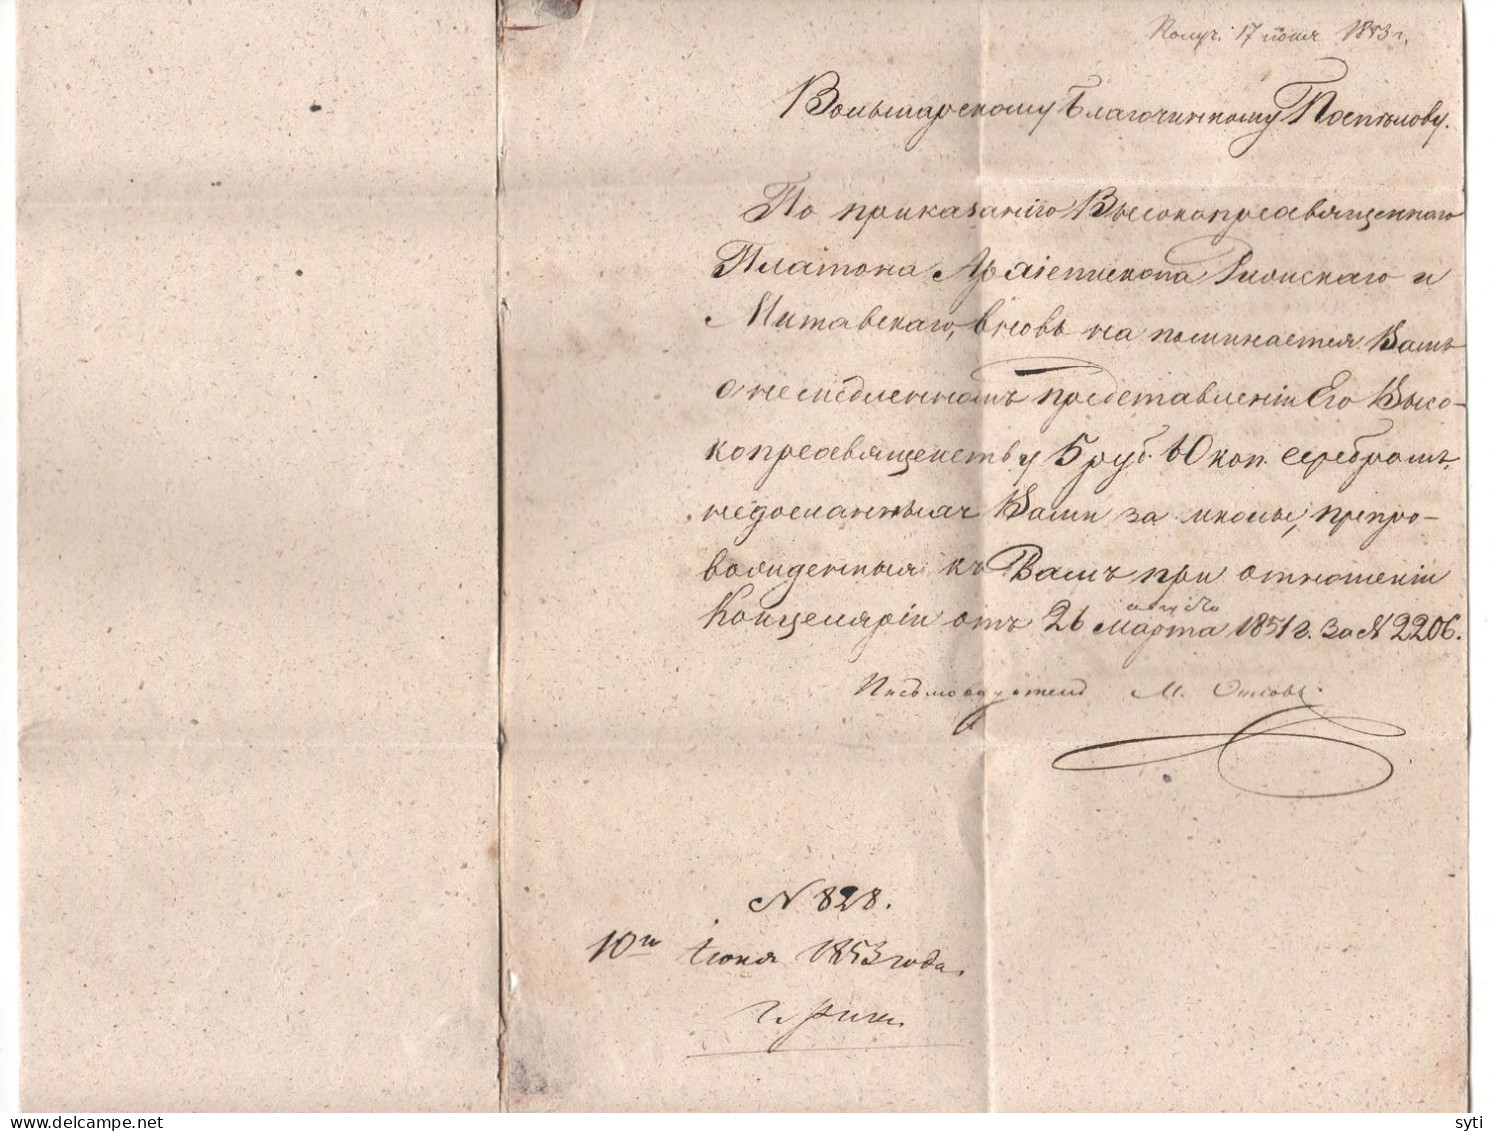 Получ. 17 Іюня 1853 г.
Вольмарскому Благочинному Поспѣлову.
По приказанію Высокопреосвященнаго
Платона Архіепископа Рижскаго и
Митавскаго, вновь напоминается Вамъ
о немедленномъ представленіи Его Высо-
копреосвященству 5 руб. 10 коп. серебромъ,
недосланныхъ Вами за школы, препро-
вожденныя къ Вамъ при отношеніи
Канцеляріи отъ 26 марта 1851 г. за N 2206.
Письмоводитель М.
N 828.
10го Іюня 1853 года.
г. Рига.
syti
delcampe.net